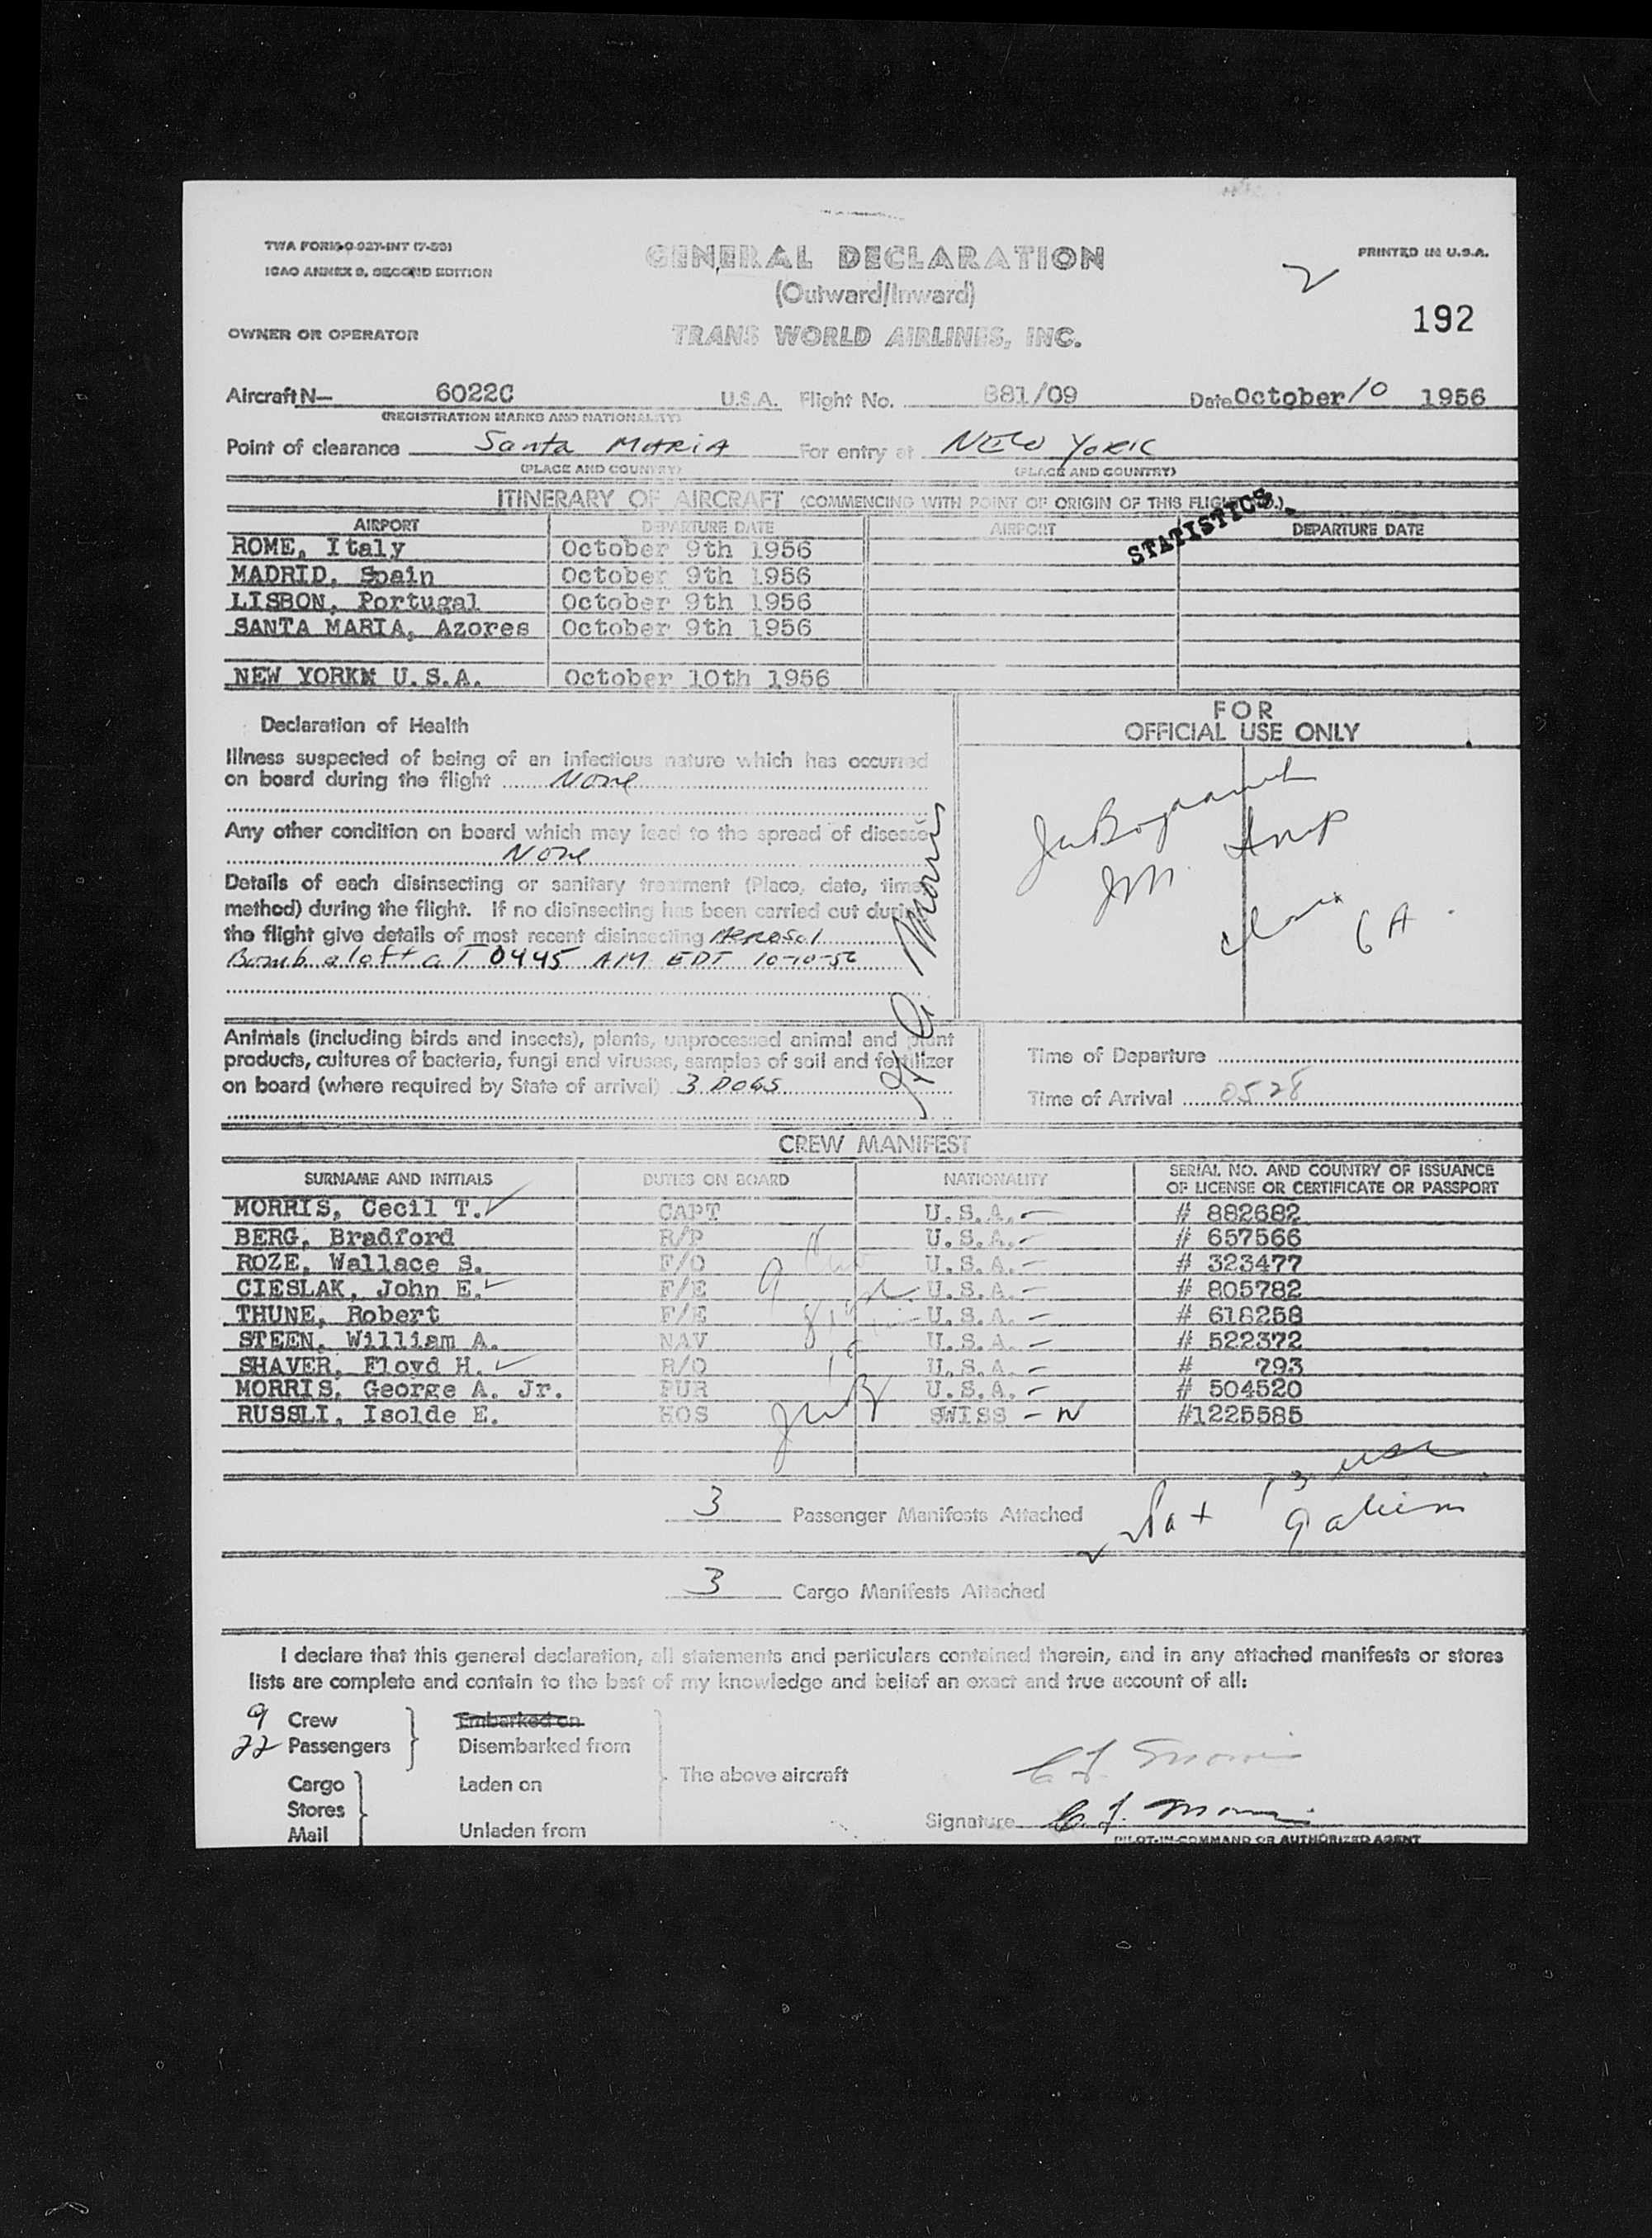 TWA FORM O-927-INT (7-53)
ICAO ANNEX 9, SECOND EDITION
GENERAL DECLARATION
(Outward/Inward)
PRINTED IN U.S.A.
192
OWNER OR OPERATOR
TRANS WORLD AIRLINES, INC.
Aircraft N— 6022C U.S.A. Flight No. 881/09 Date October 10 1956
(REGISTRATION MARKS AND NATIONALITY)
Point of clearance Santa MARIA For entry at NEW YORK
(PLACE AND COUNTRY) (PLACE AND COUNTRY)
ITINERARY OF AIRCRAFT (COMMENCING WITH POINT OF ORIGIN OF THIS FLIGHT NO.)
STATISTICS
AIRPORT DEPARTURE DATE AIRPORT DEPARTURE DATE
ROME, Italy October 9th 1956
MADRID, Spain October 9th 1956
LISBON, Portugal October 9th 1956
SANTA MARIA, Azores October 9th 1956
NEW YORKM U.S.A. October 10th 1956
Declaration of Health
FOR
OFFICIAL USE ONLY
Illness suspected of being of an infectious nature which has occurred
on board during the flight None
Any other condition on board which may lead to the spread of disease
None
Details of each disinsecting or sanitary treatment (Place, date, time
method) during the flight. If no disinsecting has been carried out during
the flight give details of most recent disinsecting Aerosol
Bomb aloft at 0445 AM EDT 10-10-56
Morris
Animals (including birds and insects), plants, unprocessed animal and plant
products, cultures of bacteria, fungi and viruses, samples of soil and fertilizer
on board (where required by State of arrival) 3 DOGS
Time of Departure
Time of Arrival 0528
CREW MANIFEST
SURNAME AND INITIALS DUTIES ON BOARD NATIONALITY SERIAL NO. AND COUNTRY OF ISSUANCE
OF LICENSE OR CERTIFICATE OR PASSPORT
MORRIS, Cecil T. CAPT U.S.A. # 882682
BERG, Bradford R/P U.S.A. # 657566
ROZE, Wallace S. F/O U.S.A. # 323477
CIESLAK, John E. F/E U.S.A. # 805782
THUNE, Robert F/E U.S.A. # 618258
STEEN, William A. NAV U.S.A. # 522372
SHAVER, Floyd H. R/O U.S.A. # 793
MORRIS, George A. Jr. PUR U.S.A. # 504520
RUSSLI, Isolde E. HOS SWISS - N #1225585
3 Passenger Manifests Attached
13 USC
9 aliens
3 Cargo Manifests Attached
I declare that this general declaration, all statements and particulars contained therein, and in any attached manifests or stores
lists are complete and contain to the best of my knowledge and belief an exact and true account of all:
9 Crew Embarked on
22 Passengers Disembarked from
The above aircraft
Cargo Laden on
Stores
Mail Unladen from
C T Morris
Signature C. T. Morris
PILOT-IN-COMMAND OR AUTHORIZED AGENT